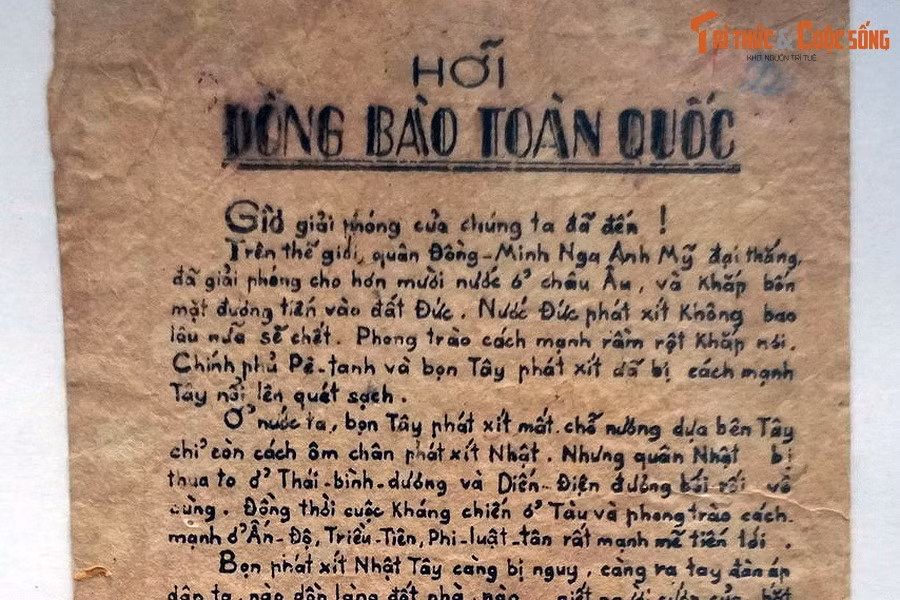 TRI THỨC & CUỘC SỐNG
KHƠI NGUỒN TRÍ TUỆ
HỠI
ĐỒNG BÀO TOÀN QUỐC
Giờ giải phóng của chúng ta đã đến !
Trên thế giới, quân Đồng-Minh Nga Anh Mỹ đại thắng,
đã giải phóng cho hơn mười nước ở châu Âu, và khắp bốn
mặt đương tiến vào đất Đức. Nước Đức phát xít không bao
lâu nữa sẽ chết. Phong trào cách mạnh rầm rột khắp nơi.
Chính phủ Pê-tanh và bọn Tây phát xít đã bị cách mạnh
Tây nổi lên quét sạch.
Ở nước ta, bọn Tây phát xít mất chỗ nương dựa bên Tây
chỉ còn cách ôm chân phát xít Nhật. Nhưng quân Nhật bị
thua to ở Thái-bình-dương và Diến-Điện đương bối rối vô
cùng. Đồng thời cuộc kháng chiến ở Tàu và phong trào cách
mạnh ở Ấn-Độ, Triều-Tiên, Phi-luật-tân rất mạnh mẽ tiến tới.
Bọn phát xít Nhật Tây càng bị nguy, càng ra tay đàn áp
dân ta, nào dồn làng đốt nhà, nào giết người cướp của, bắt